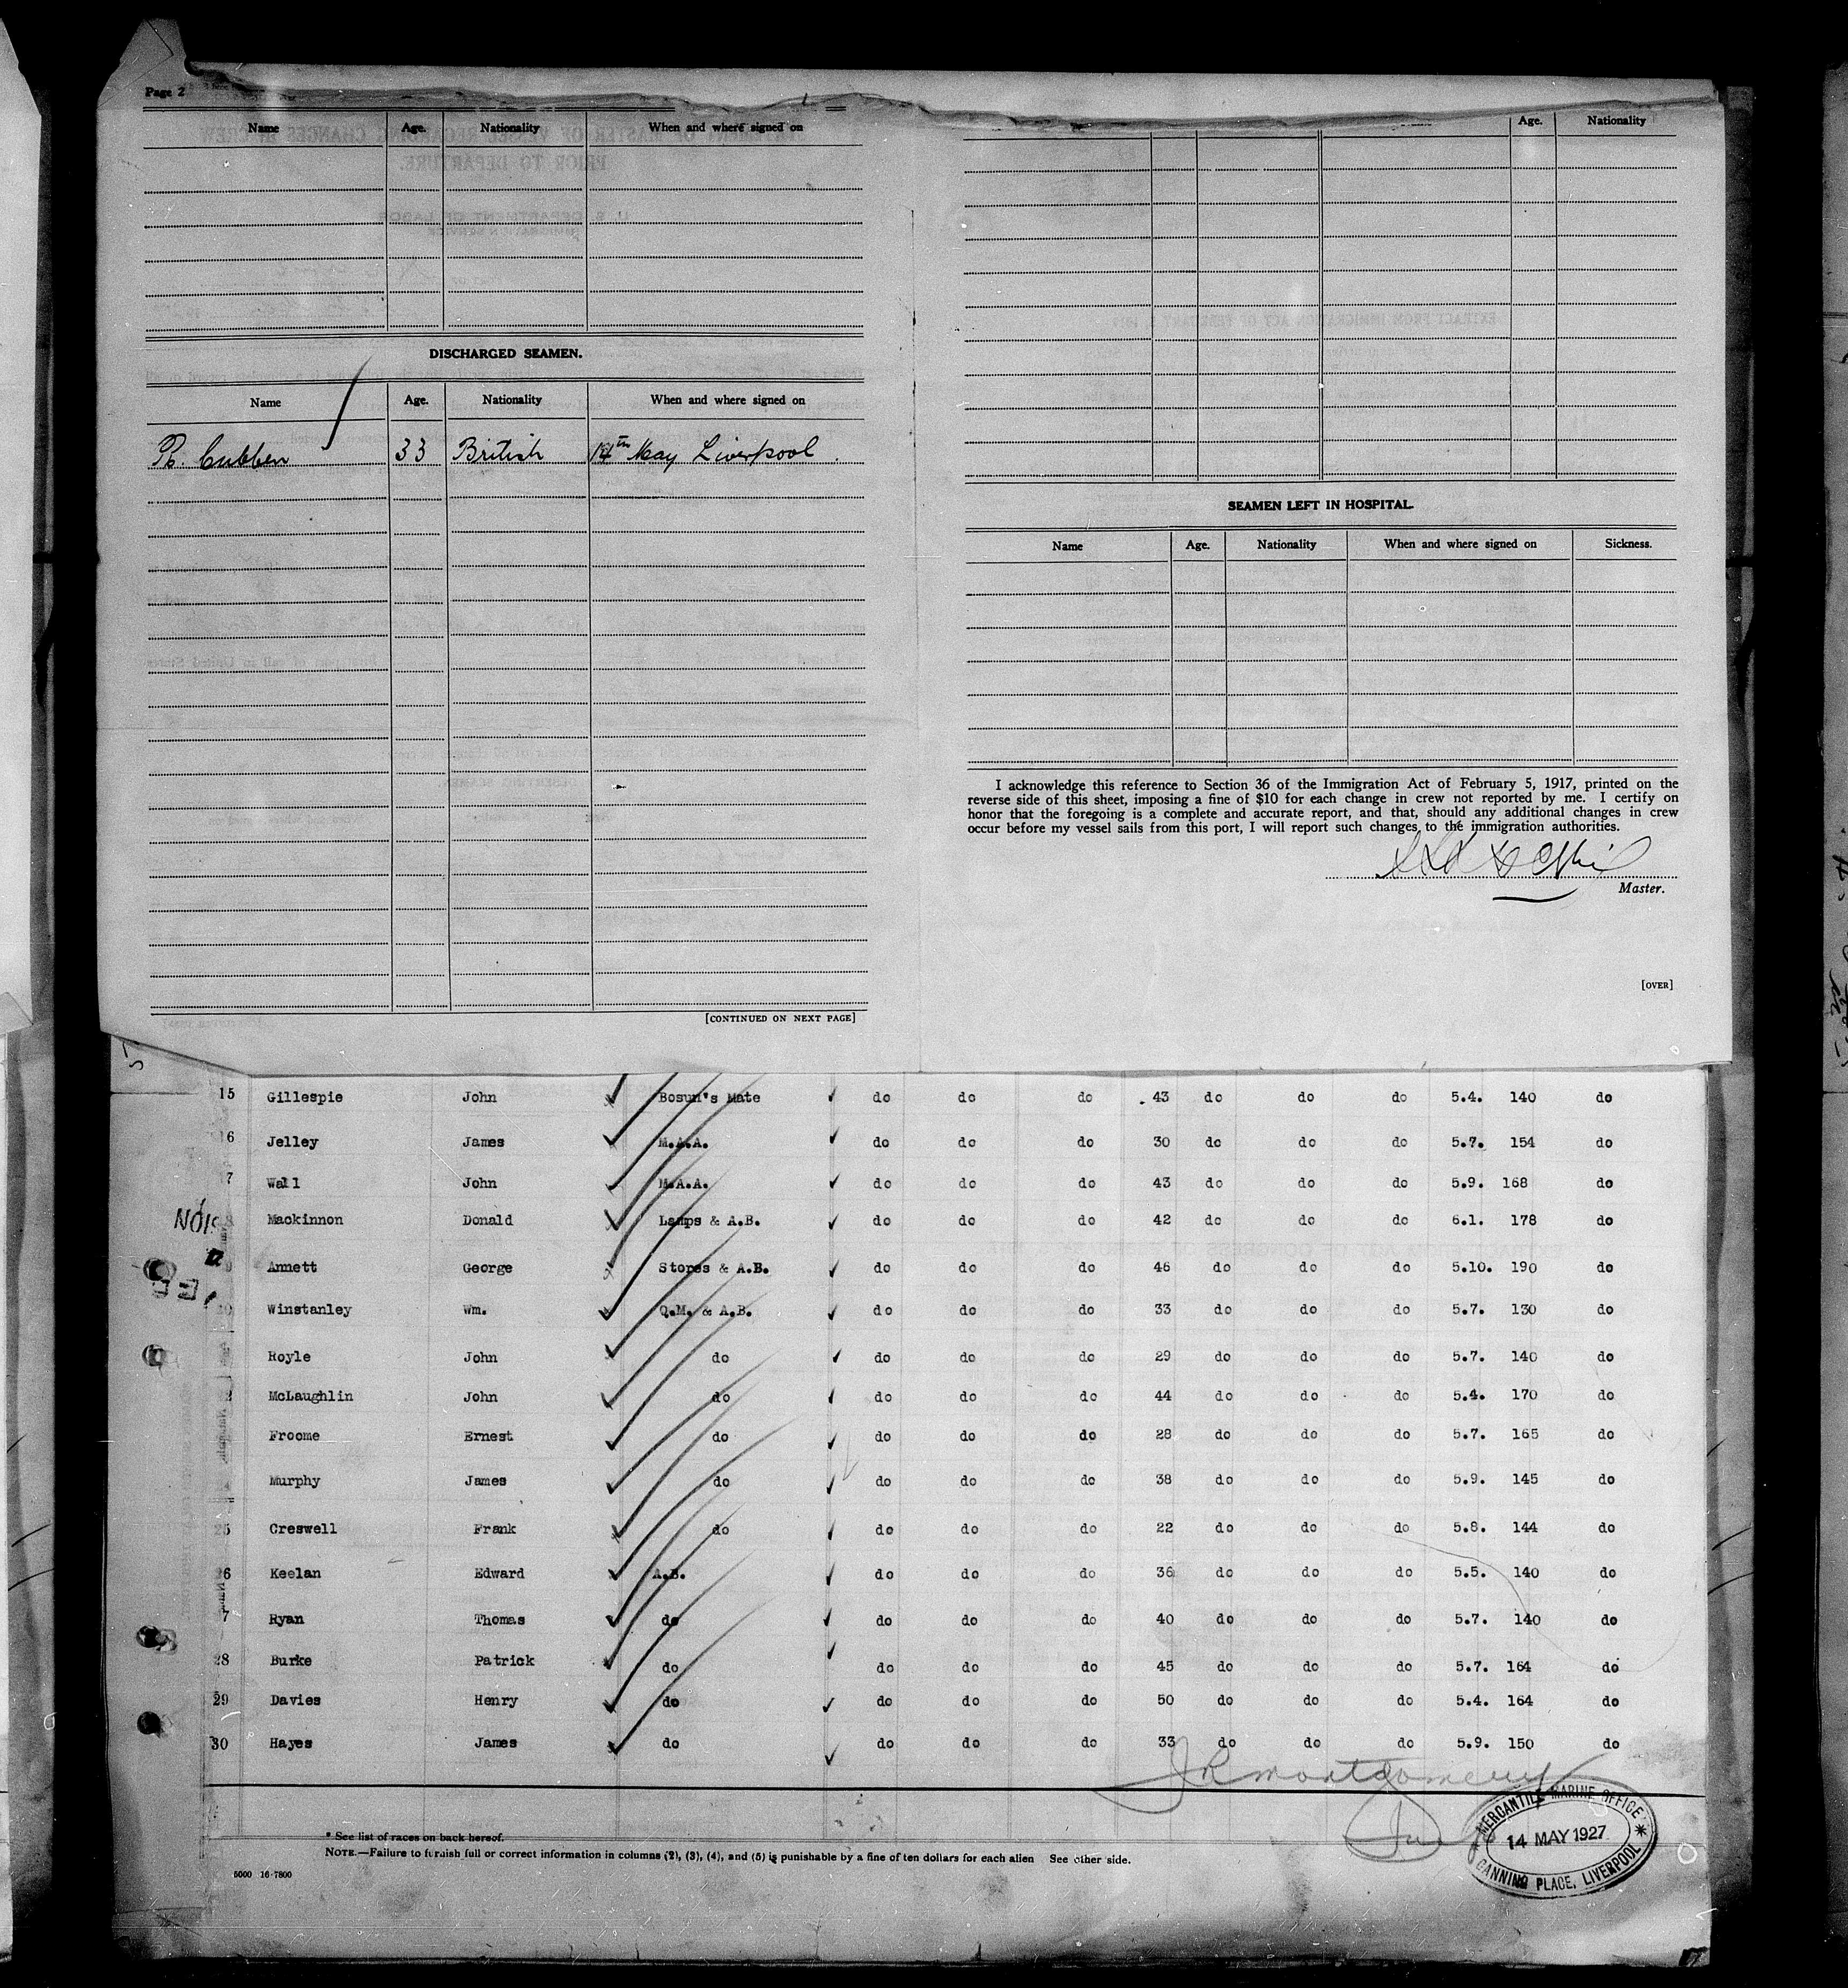 Page 2
Name Age. Nationality When and where signed on
DISCHARGED SEAMEN.
Name Age. Nationality When and where signed on
Cubben 33 British 14th May Liverpool.
[CONTINUED ON NEXT PAGE]
Age. Nationality
SEAMEN LEFT IN HOSPITAL.
Name Age. Nationality When and where signed on Sickness.
I acknowledge this reference to Section 36 of the Immigration Act of February 5, 1917, printed on the
reverse side of this sheet, imposing a fine of $10 for each change in crew not reported by me. I certify on
honor that the foregoing is a complete and accurate report, and that, should any additional changes in crew
occur before my vessel sails from this port, I will report such changes to the immigration authorities.
Master.
[OVER]
5
15 Gillespie John Bosun's Mate do do do 43 do do do 5.4. 140 do
16 Jelley James M.A.A. do do do 30 do do do 5.7. 154 do
7 Wall John M.A.A. do do do 43 do do do 5.9. 168 do
8 Mackinnon Donald Lamps & A.B. do do do 42 do do do 6.1. 178 do
9 Annett George Stores & A.B. do do do 46 do do do 5.10. 190 do
20 Winstanley Wm. Q.M. & A.B. do do do 33 do do do 5.7. 130 do
Royle John do do do do 29 do do do 5.7. 140 do
2 McLaughlin John do do do do 44 do do do 5.4. 170 do
Froome Ernest do do do do 28 do do do 5.7. 165 do
4 Murphy James do do do do 38 do do do 5.9. 145 do
25 Creswell Frank do do do do 22 do do do 5.8. 144 do
26 Keelan Edward A.B. do do do 36 do do do 5.5. 140 do
7 Ryan Thomas do do do do 40 do do do 5.7. 140 do
28 Burke Patrick do do do do 45 do do do 5.7. 164 do
29 Davies Henry do do do do 50 do do do 5.4. 164 do
30 Hayes James do do do do 33 do do do 5.9. 150 do
JRMontgomery
* See list of races on back hereof.
NOTE.—Failure to furnish full or correct information in columns (2), (3), (4), and (5) is punishable by a fine of ten dollars for each alien See other side.
5000 16-7800
MERCANTILE MARINE OFFICE
14 MAY 1927
CANNING PLACE, LIVERPOOL